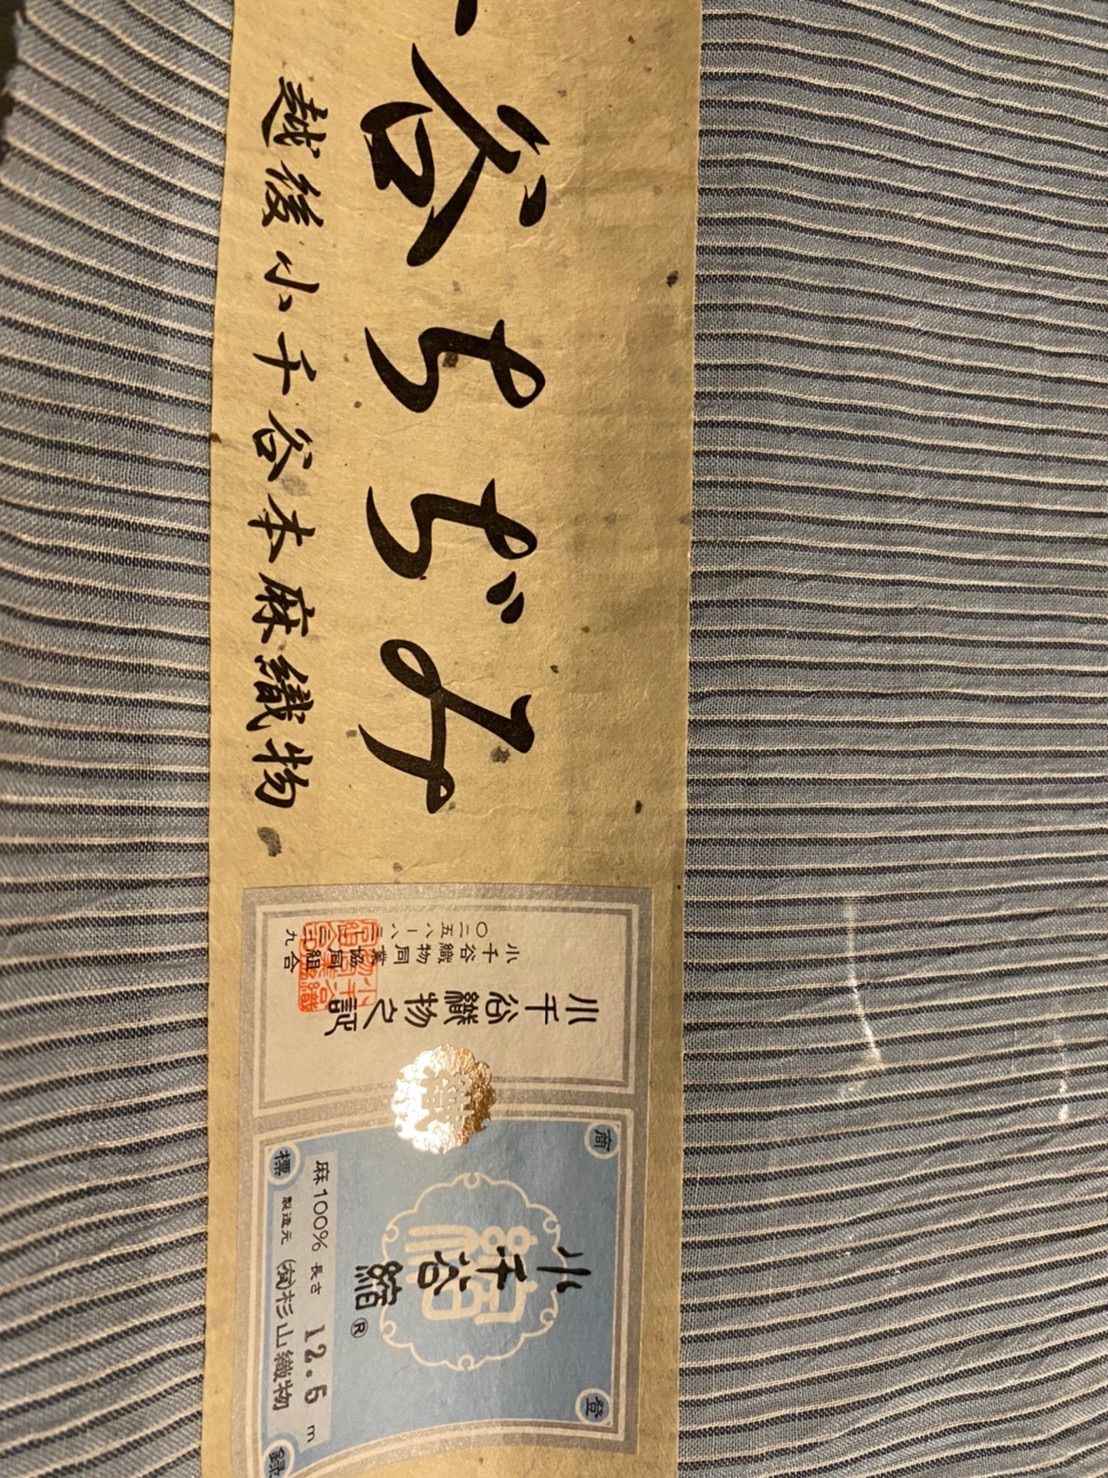 千谷ちぢみ
越後小千谷本麻織物
小千谷織物之証
小千谷織物同業協同組合
〇二五八ー八三ー二三二九
小千谷縮®
商標
登録
麻100% 長さ 12.5 m
製造元 ㈲杉山織物